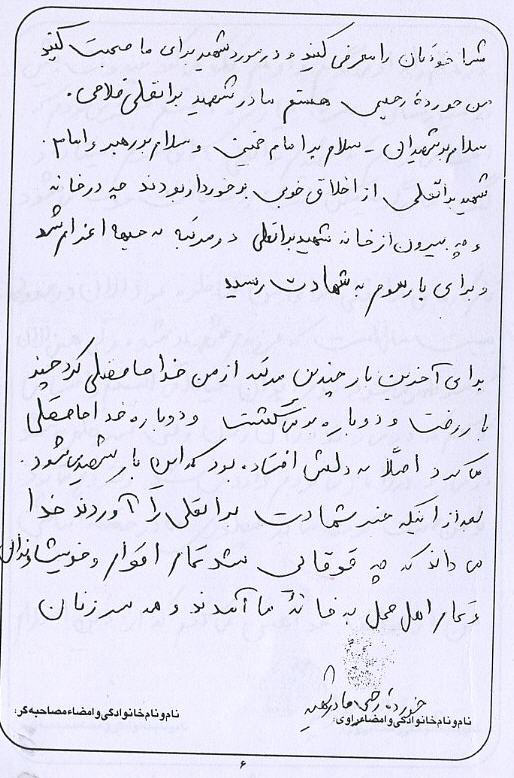 شما خودتان را معرفی کنید و در مورد شهید برای ما صحبت کنید
من خوردهٔ رحیمی هستم مادر شهید براتقلی فلاحی.
سلام بر شهیدان - سلام بر امام خمینی و سلام بر رهبر و امام.
شهید براتقلی از اخلاق خوبی برخوردار بودند چه در خانه
و چه بیرون از خانه شهید براتقلی در مرتبه به جبهه اعزام شد
و برای بار سوم به شهادت رسید
برای آخرین بار چندین مرتبه از من خداحافظی کرد چند
بار رفت و دوباره برمی‌گشت و دوباره خداحافظی
می‌کرد اصلاً به دلش افتاده بود که این بار شهید می‌شود.
بعد از اینکه خبر شهادت براتقلی را آوردند خدا
می‌داند که چه غوغایی شد تمام اقوام و خویشاوندان
و تمام اهل محل به خانهٔ ما آمدند و همه سر زنان
خوردهٔ رحیمی مادر شهید
نام و نام خانوادگی و امضاء راوی:
نام و نام خانوادگی و امضاء مصاحبه گر:
۶